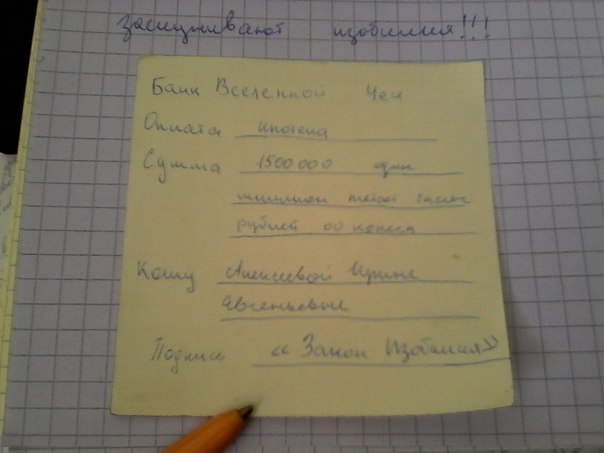 заслуживают изобилия!!!
Банк Вселенной Чек
Оплата ипотека
Сумма 1500000 один
миллион пятьсот тысяч
рублей 00 копеек
Кому Алексеевой Ирине
Евгеньевне
Подпись «Закон Изобилия»